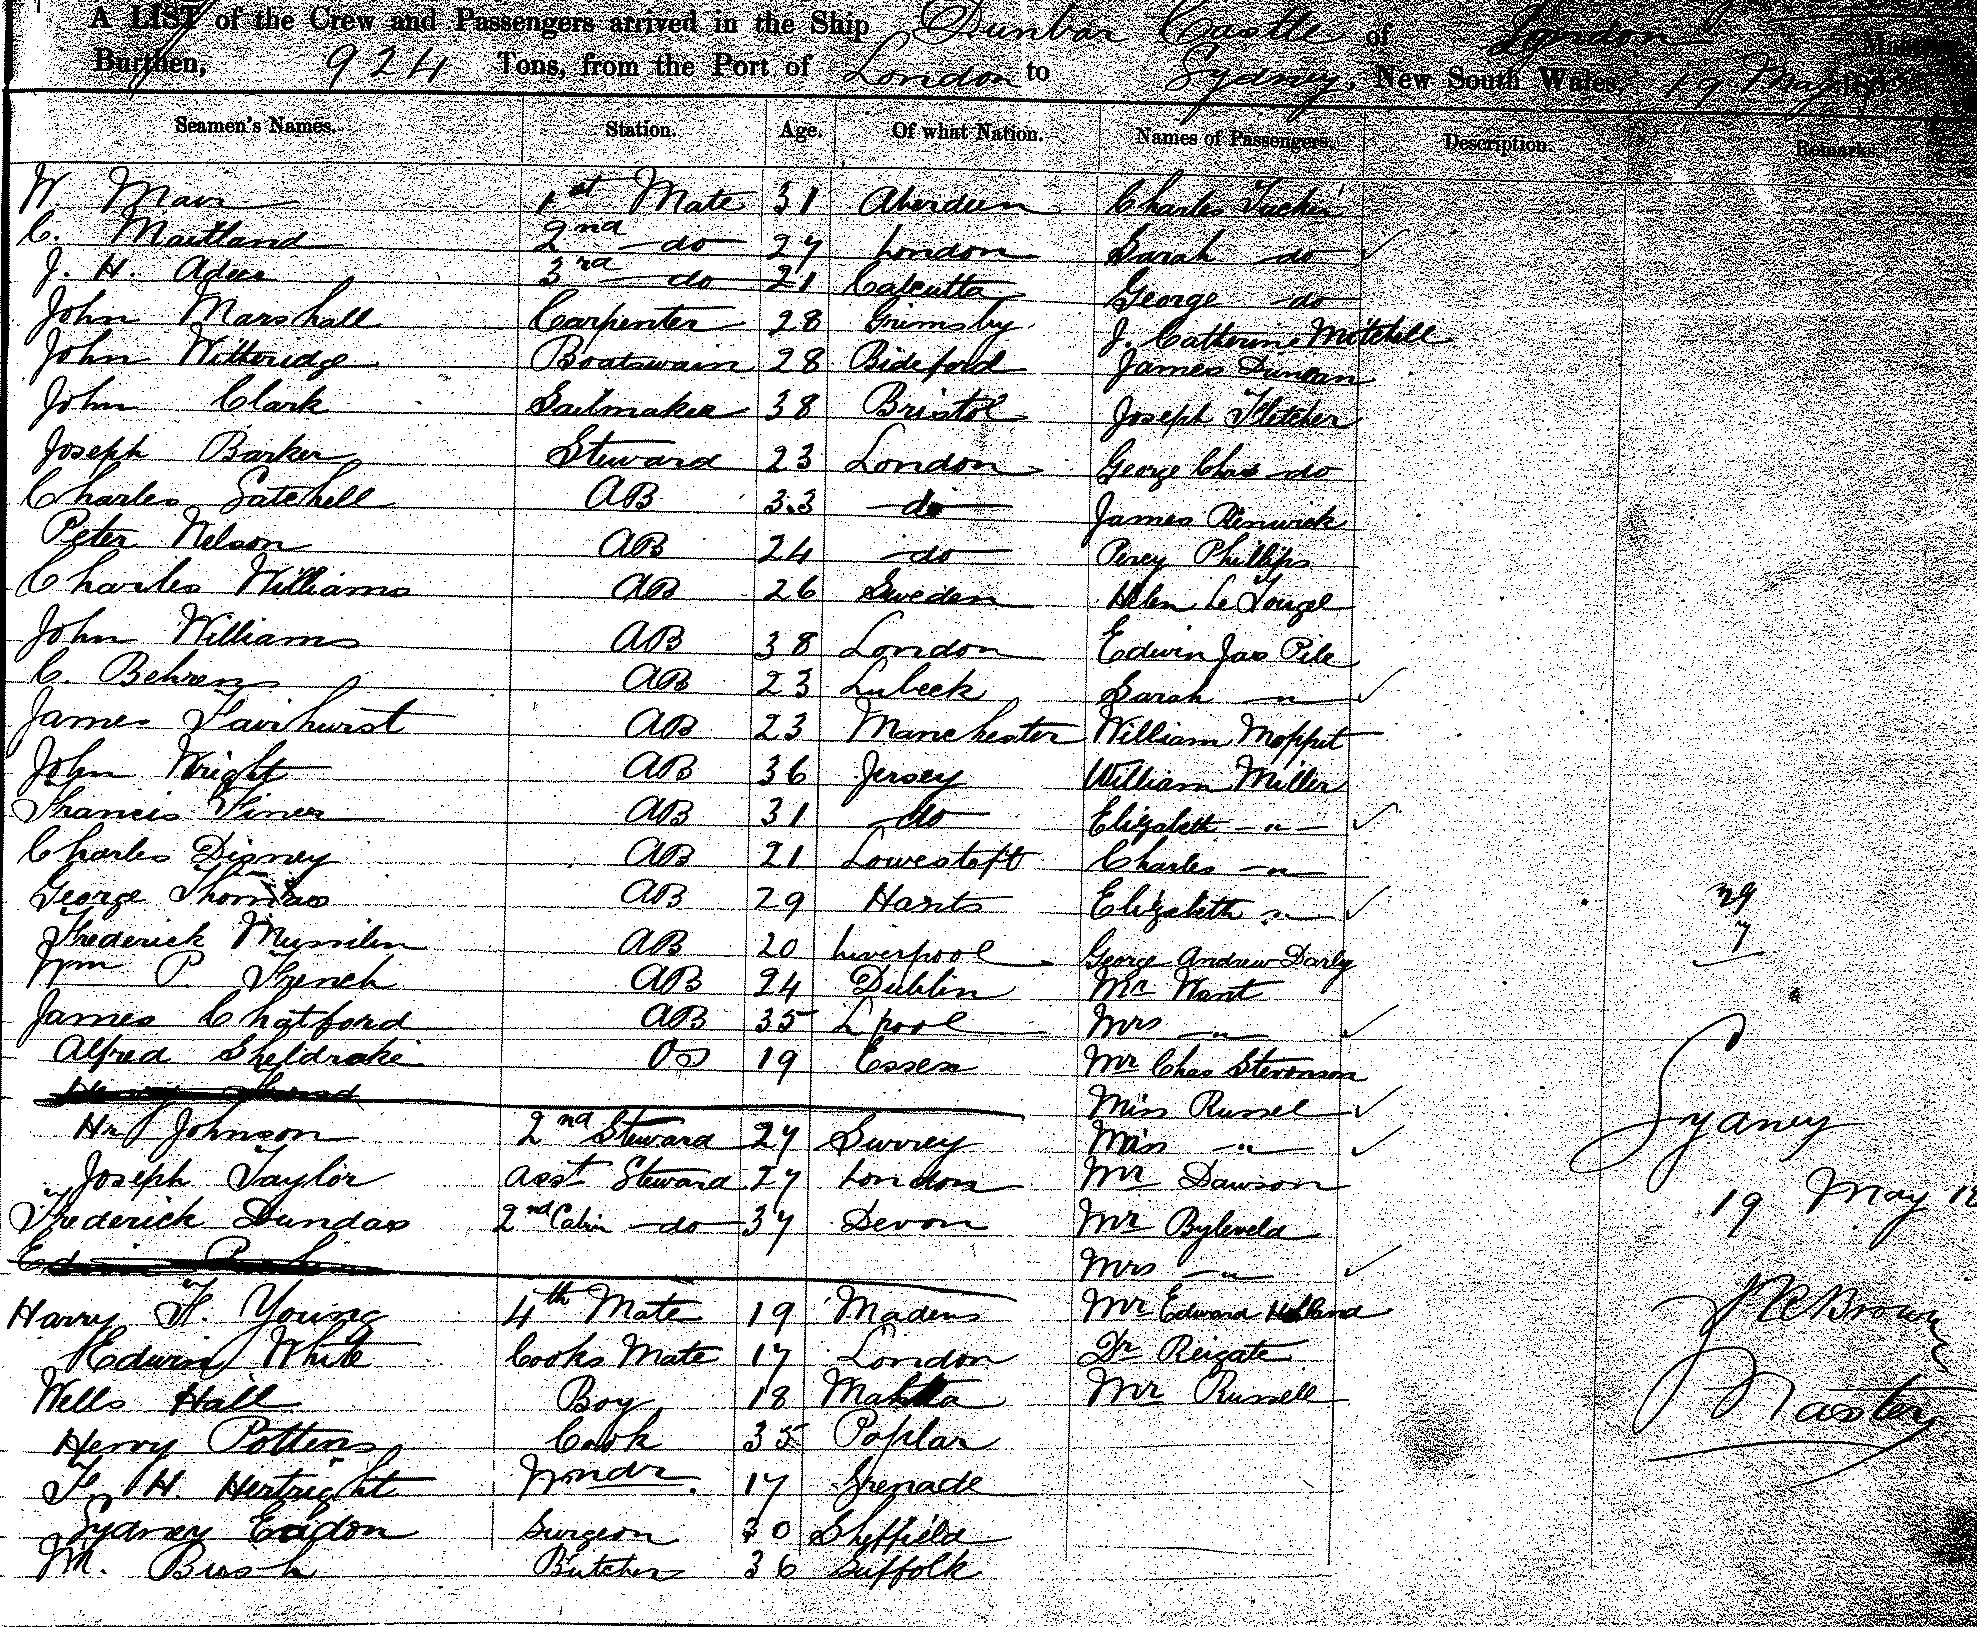 A LIST of the Crew and Passengers arrived in the Ship Dunbar Castle of London
Burthen, 924 Tons, from the Port of London to Sydney, New South Wales, 19 May
Seamen's Names. Station. Age. Of what Nation. Names of Passengers. Description. Remarks
W. Mair 1st Mate 31 Aberdeen Charles Tucker
C. Maitland 2nd do 27 London Sarah do ✓
J. H. 3rd do 21 Calcutta George do
John Marshall Carpenter 28 Grimsby J. Catherine Mitchell
John Witteridge Boatswain 28 Bideford James Duncan
John Clark Sailmaker 38 Bristol Joseph Fletcher
Joseph Barker Steward 23 London George Chas do
Charles Satchell AB 33 do James Renwick
Peter Nelson AB 24 do Percy Phillips
Charles Williams AB 26 Sweden Helen Le Touzel
John Williams AB 38 London Edwin Jas Pile
C. Behrens AB 23 Lubeck Sarah " ✓
James Fairhurst AB 23 Manchester William Moppit
John Wright AB 36 Jersey William Miller
Francis Finer AB 31 do Elizabeth " ✓
Charles Disney AB 21 Lowestoft Charles "
George Thomas AB 29 Hants Elizabeth " ✓ 29
Frederick AB 20 Liverpool George Andrew Darly 7
Wm P. French AB 24 Dublin Mr Want
James Chatford AB 35 Lpool Mrs " ✓
Alfred Sheldrake OS 19 Essex Mr Chas Stevenson
Miss Russel ✓
Hy Johnson 2nd Steward 27 Surrey Miss " ✓ Sydney
Joseph Taylor asst Steward 27 London Mr Dawson 19 May 18
Frederick Dundas 2nd Cabin do 37 Devon Mr Byleveld
Mrs " ✓
Harry F. Young 4th Mate 19 Madras Mr Edward Holland J R Brown
Edwin White Cooks Mate 17 London Dr Reigate
Wells Hall Boy 18 Malta Mr Russell Master
Henry Pottens Cook 35 Poplar
F. H. Hertright 17 Grenade
Sydney Eadon Surgeon 30 Sheffield
M. Bush Butcher 36 Suffolk